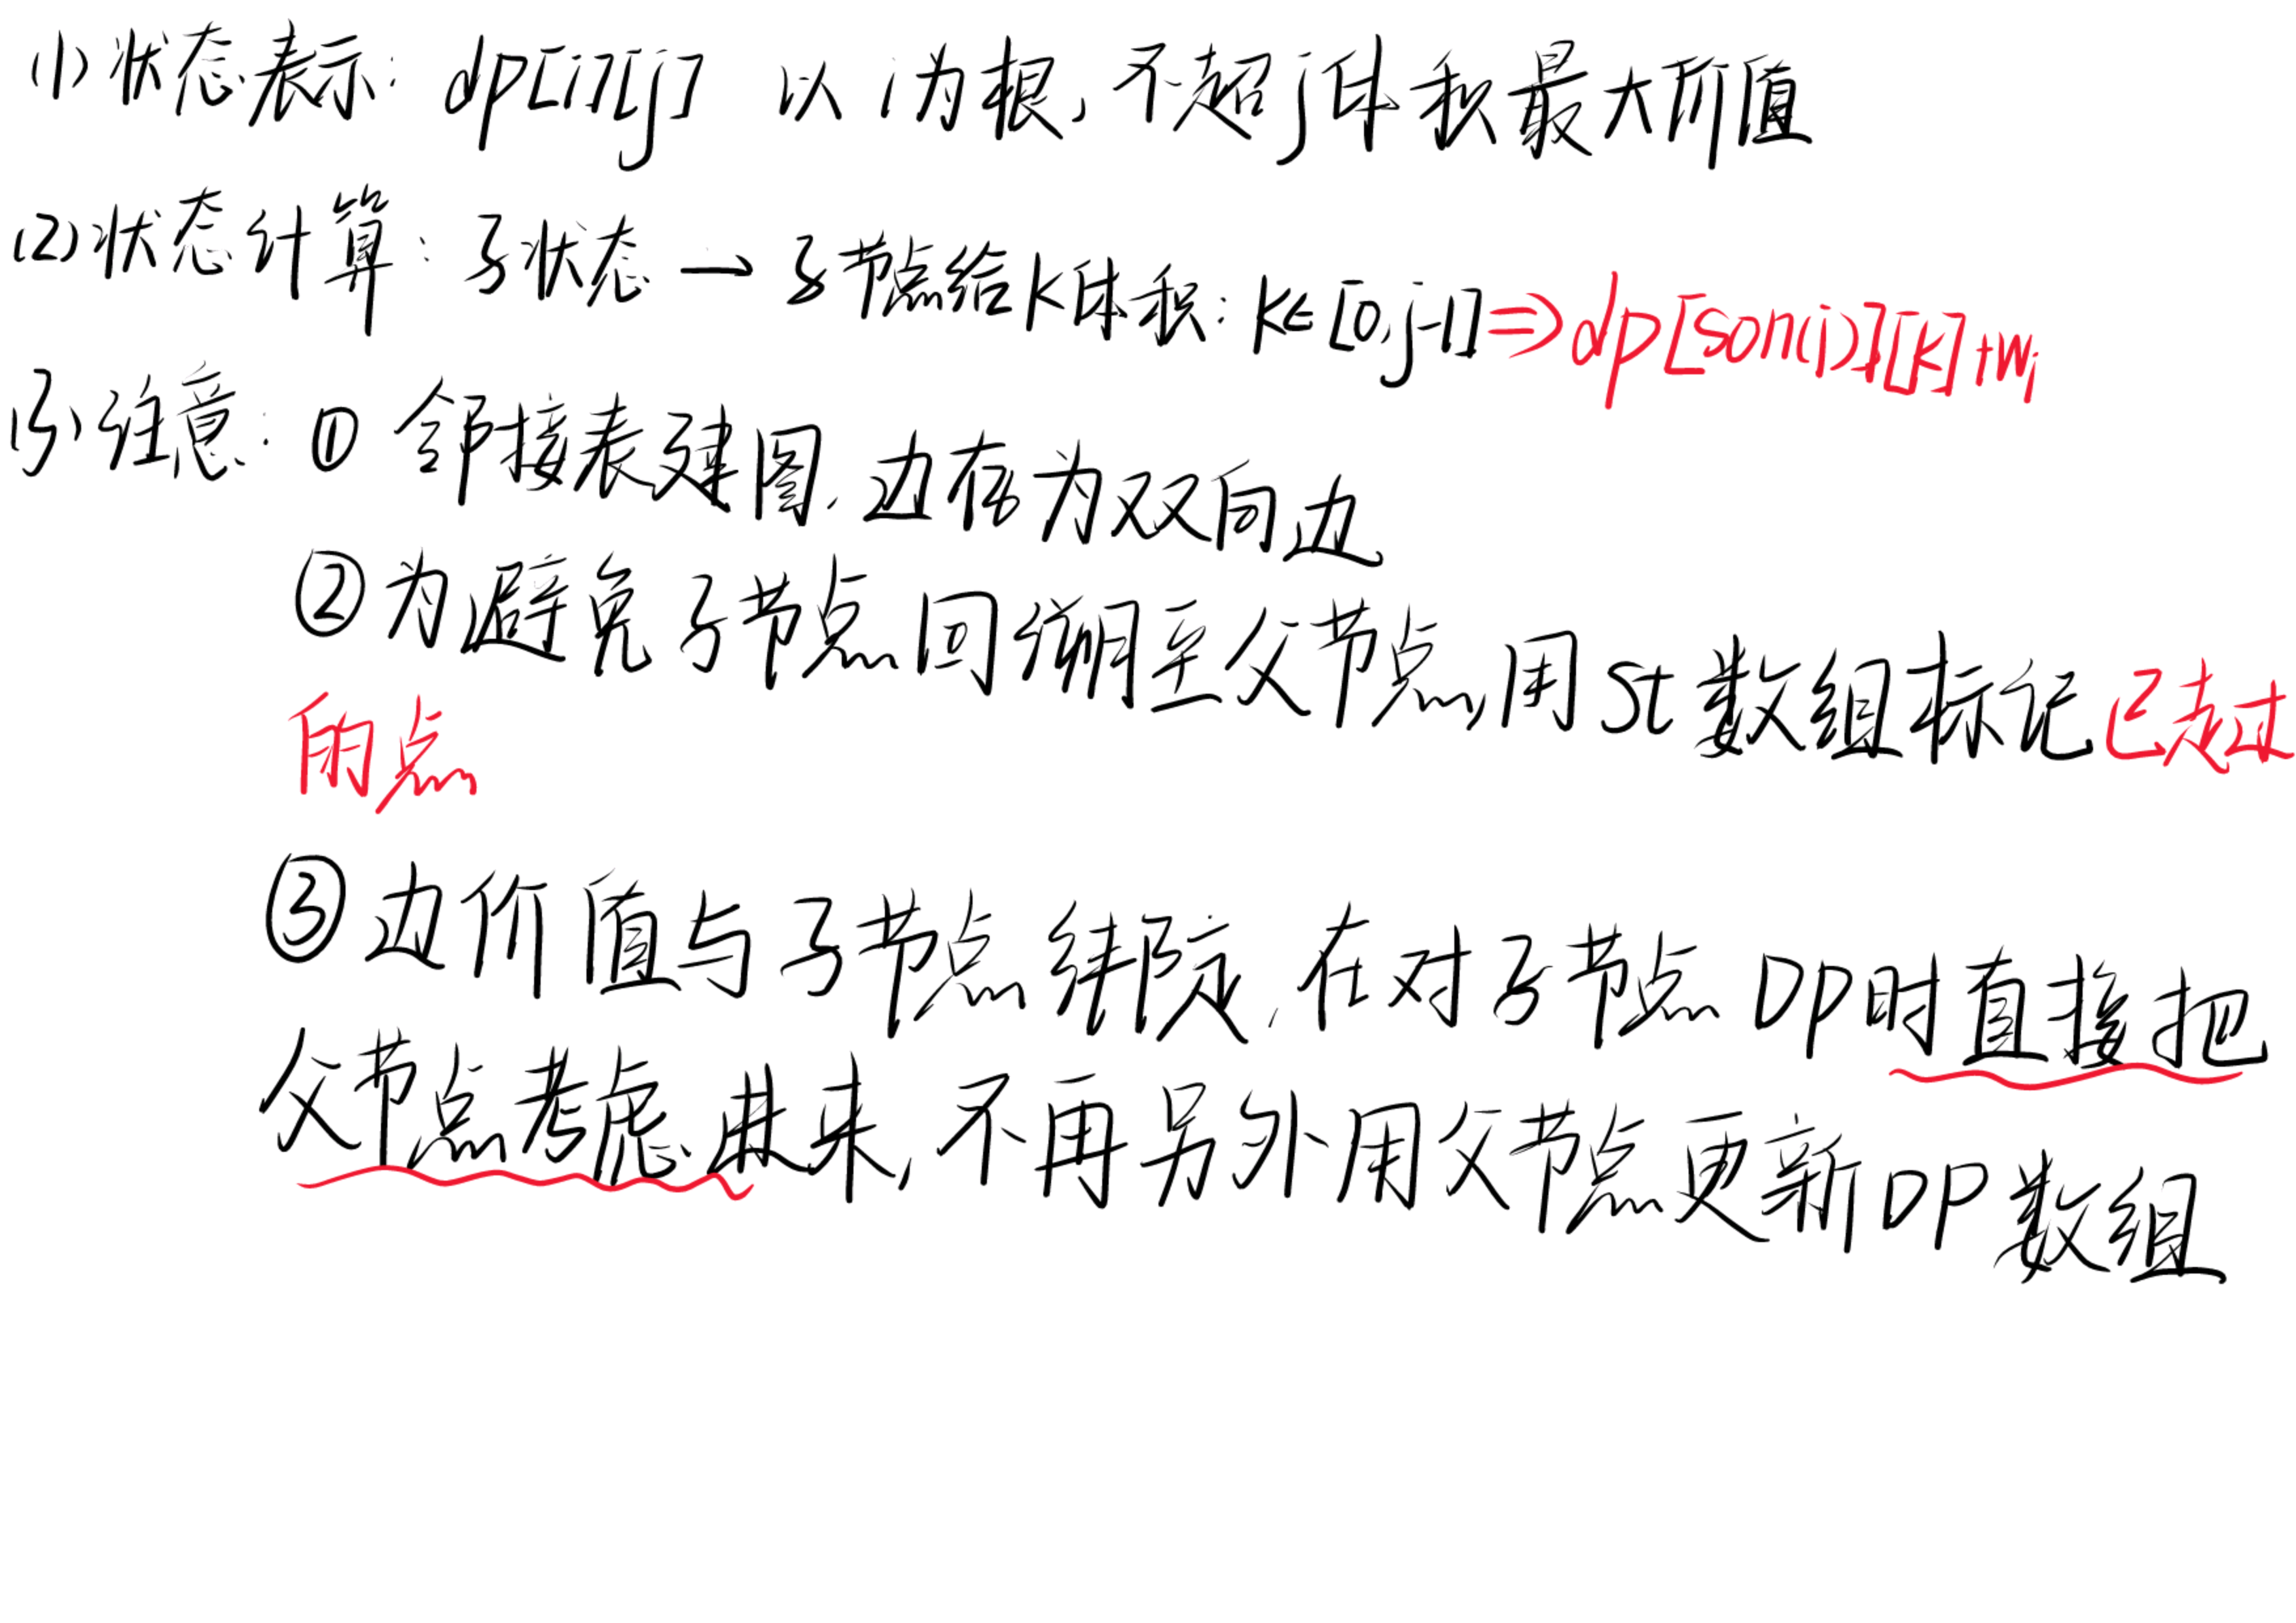 (1)状态表示: dp[i][j] 以i为根,不超j体积最大价值
(2)状态计算: 子状态→子节点给k体积: k∈[0,j-1]⇒dp[son(i)][k]+wi
(3)注意: ① 邻接表建图,边存为双向边
②为避免子节点回溯至父节点,用st数组标记已走过
的点
③边价值与子节点绑定,在对子节点DP时直接把
父节点考虑进来,不再另外用父节点更新DP数组